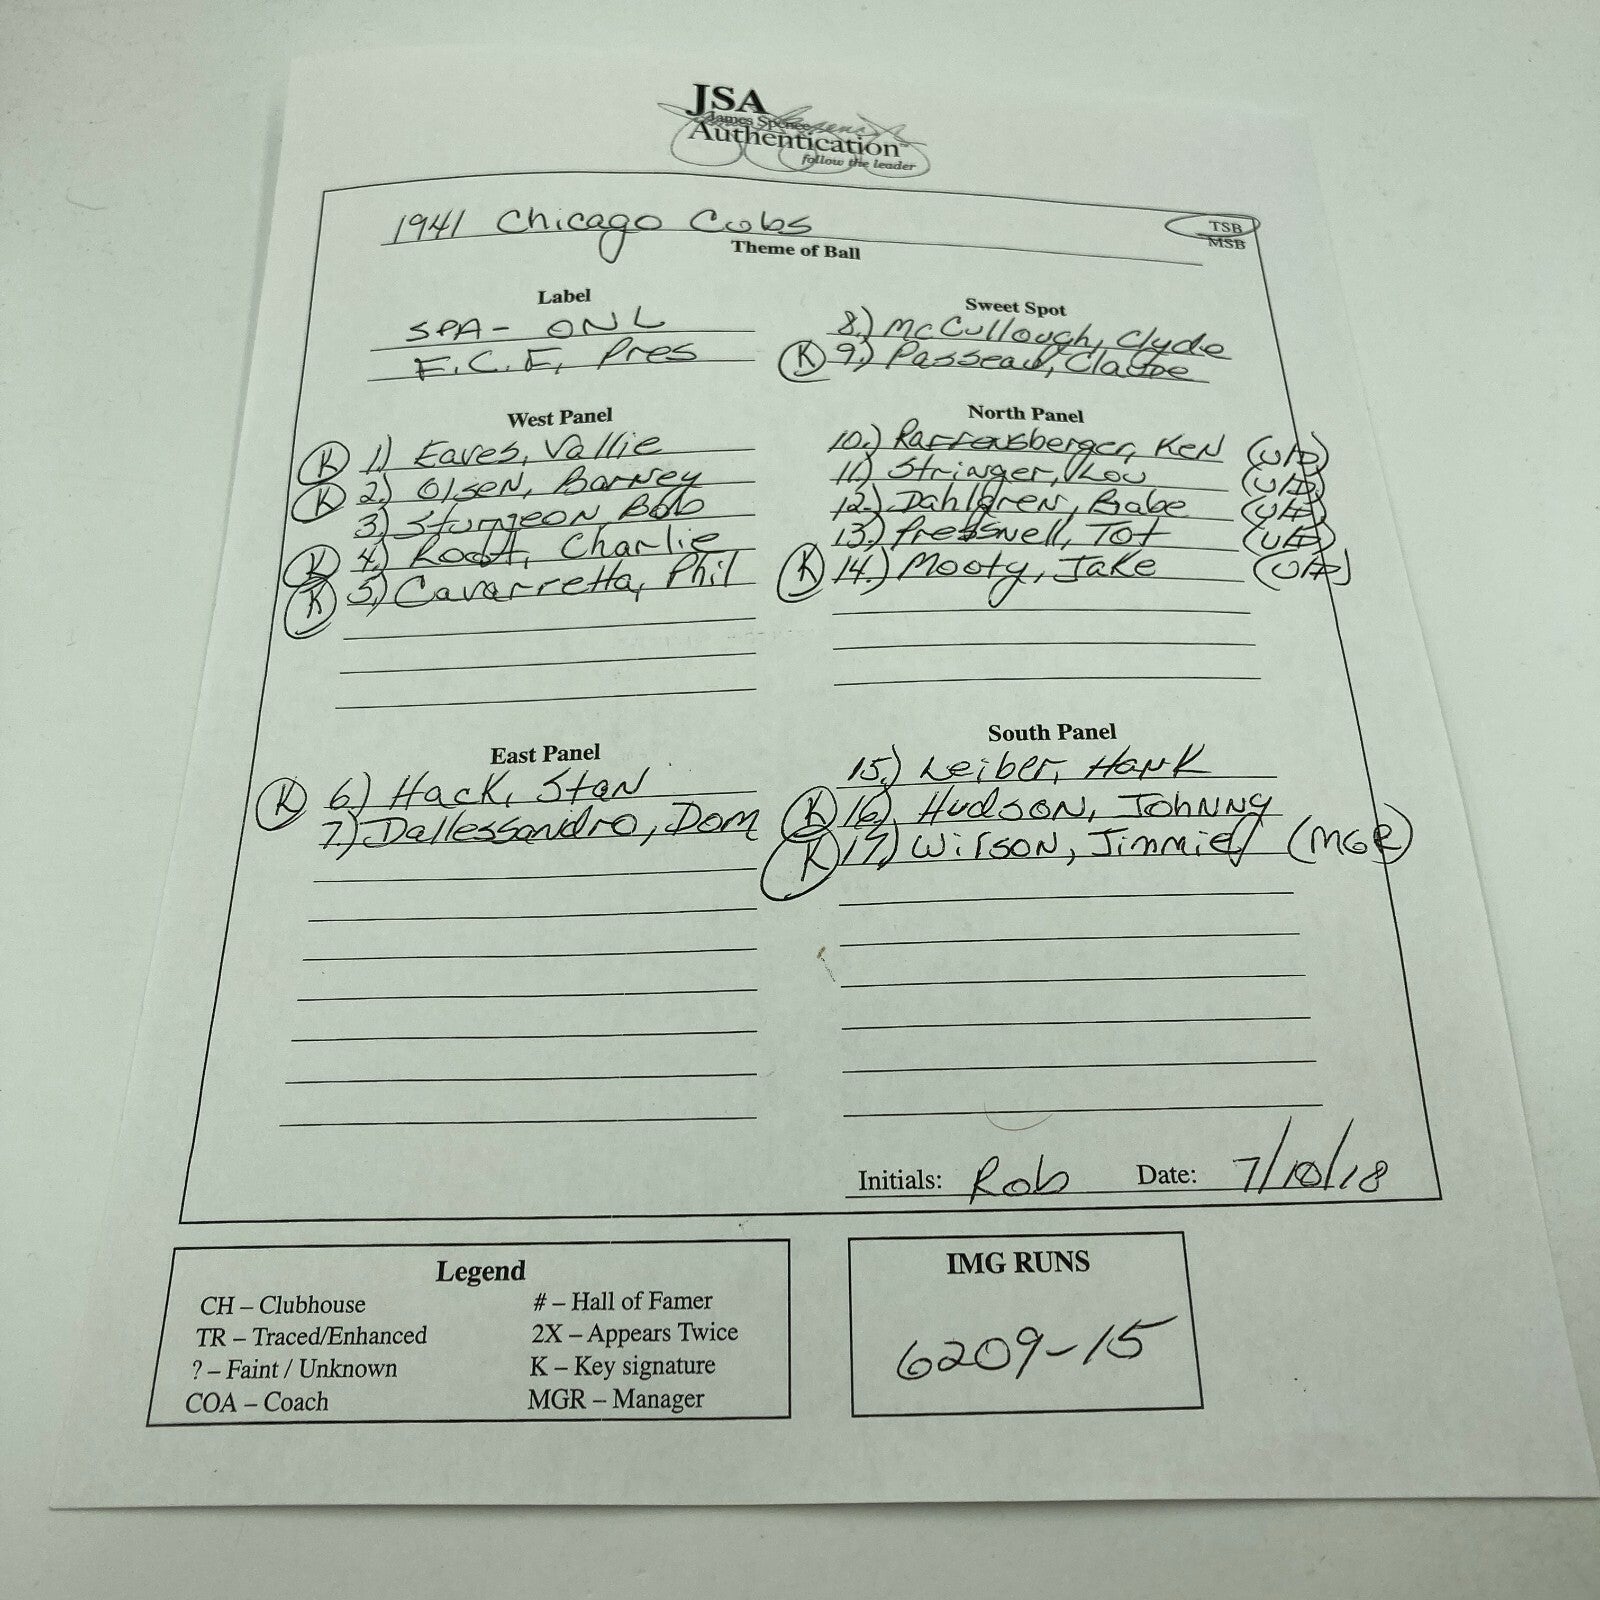 JSA
James Spence
Authentication™
follow the leader
1941 Chicago Cubs
Theme of Ball
TSB
MSB
Label
SPA- ONL
F.C.F, Pres
Sweet Spot
8.) McCullough, Clyde
K 9.) Passeau, Claude
West Panel
K 1) Eaves, Vallie
K 2) Olsen, Barney
3) Sturgeon, Bob
K 4) Root, Charlie
K 5) Cavarretta, Phil
North Panel
10.) Raffensberger, Ken (U/D)
11.) Stringer, Lou (U/D)
12.) Dahlgren, Babe (U/D)
13.) Pressnell, Tot (U/D)
K 14.) Mooty, Jake (U/D)
East Panel
K 6) Hack, Stan
7.) Dallessandro, Dom
South Panel
15.) Leiber, Hank
K 16) Hudson, Johnny
K 17) Wilson, Jimmie (MGR)
Initials: Rob Date: 7/10/18
Legend
CH – Clubhouse
TR – Traced/Enhanced
? – Faint / Unknown
COA – Coach
# – Hall of Famer
2X – Appears Twice
K – Key signature
MGR – Manager
IMG RUNS
6209-15